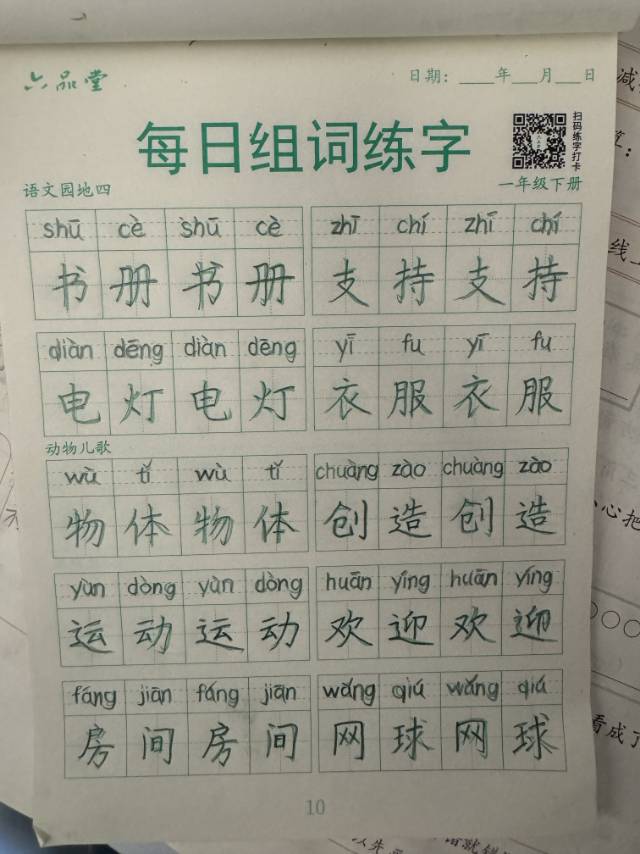 六品堂
日期：____年___月___日
每日组词练字
扫码练字打卡
语文园地四 一年级下册
shū cè shū cè zhī chí zhī chí
书 册 书 册 支 持 支 持
diàn dēng diàn dēng yī fu yī fu
电 灯 电 灯 衣 服 衣 服
动物儿歌
wù tǐ wù tǐ chuàng zào chuàng zào
物 体 物 体 创 造 创 造
yùn dòng yùn dòng huān yíng huān yíng
运 动 运 动 欢 迎 欢 迎
fáng jiān fáng jiān wǎng qiú wǎng qiú
房 间 房 间 网 球 网 球
10
减
线
心把
看成了